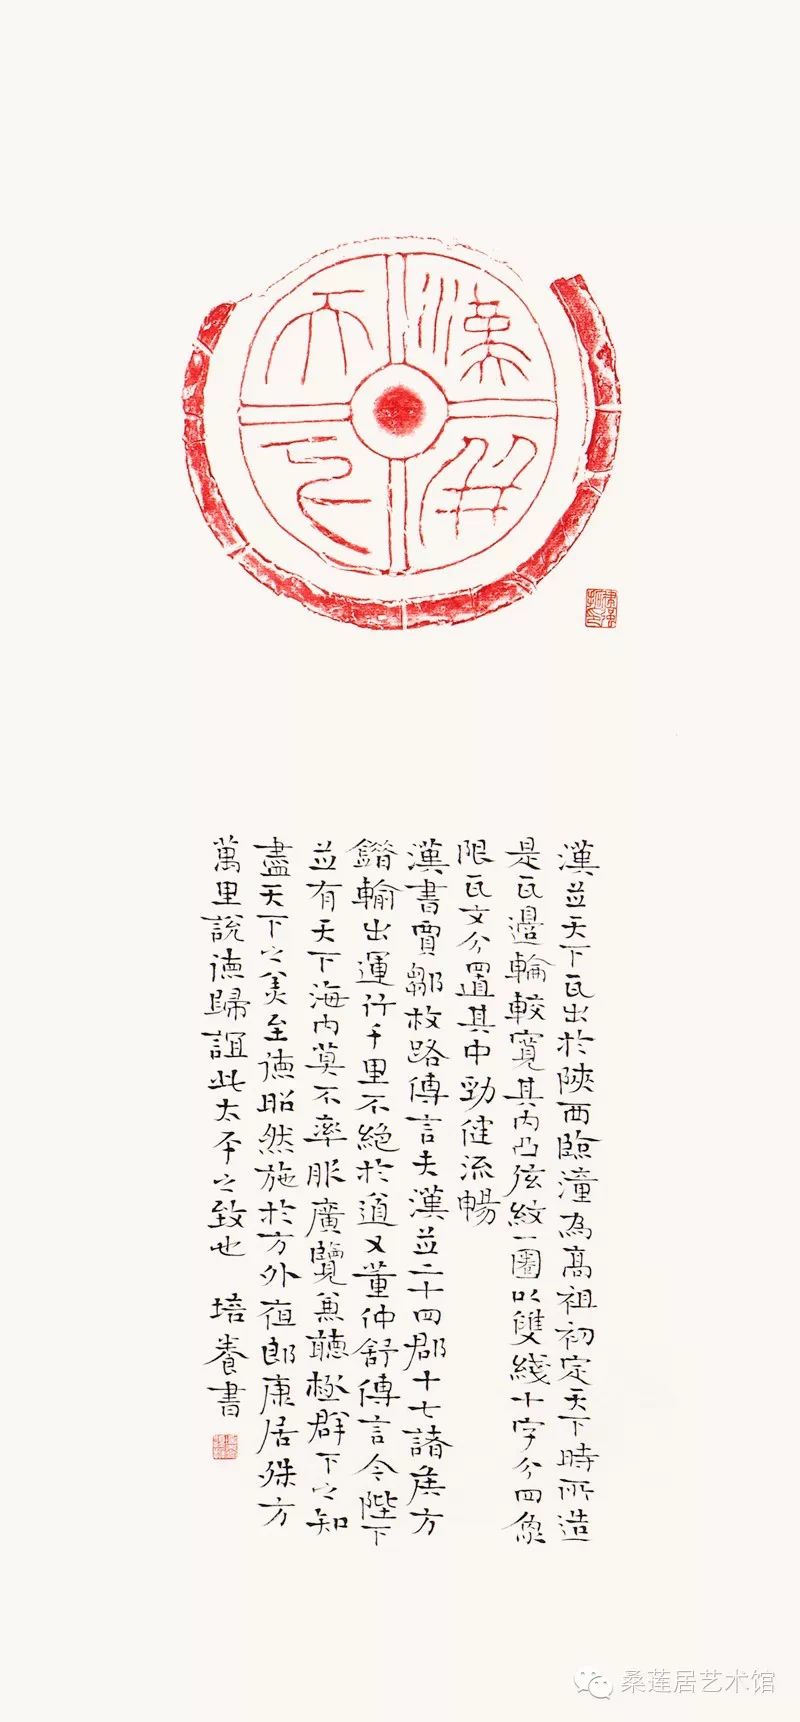 漢并
天下
漢並天下瓦出於陝西臨潼為高祖初定天下時所造
是瓦邊輪較寬其內凸弦紋一圈以雙綫十字分四象
限瓦文分置其中勁健流暢
漢書賈鄒枚路傳言夫漢並二十四郡十七諸侯方
錯輸出運行千里不絕於道又董仲舒傳言今陛下
並有天下海內莫不率服廣覽兼聽極群下之知
盡天下之美至德昭然施於方外夜郎康居殊方
萬里說德歸誼此太平之致也 培養書
桑莲居艺术馆